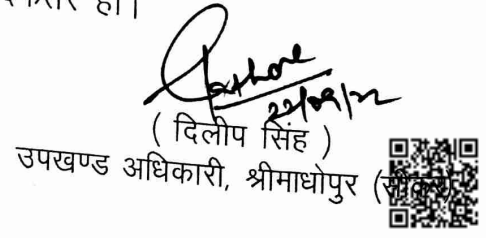 हो।
Rathore
22/09/22
( दिलीप सिंह )
उपखण्ड अधिकारी, श्रीमाधोपुर (सीकर)